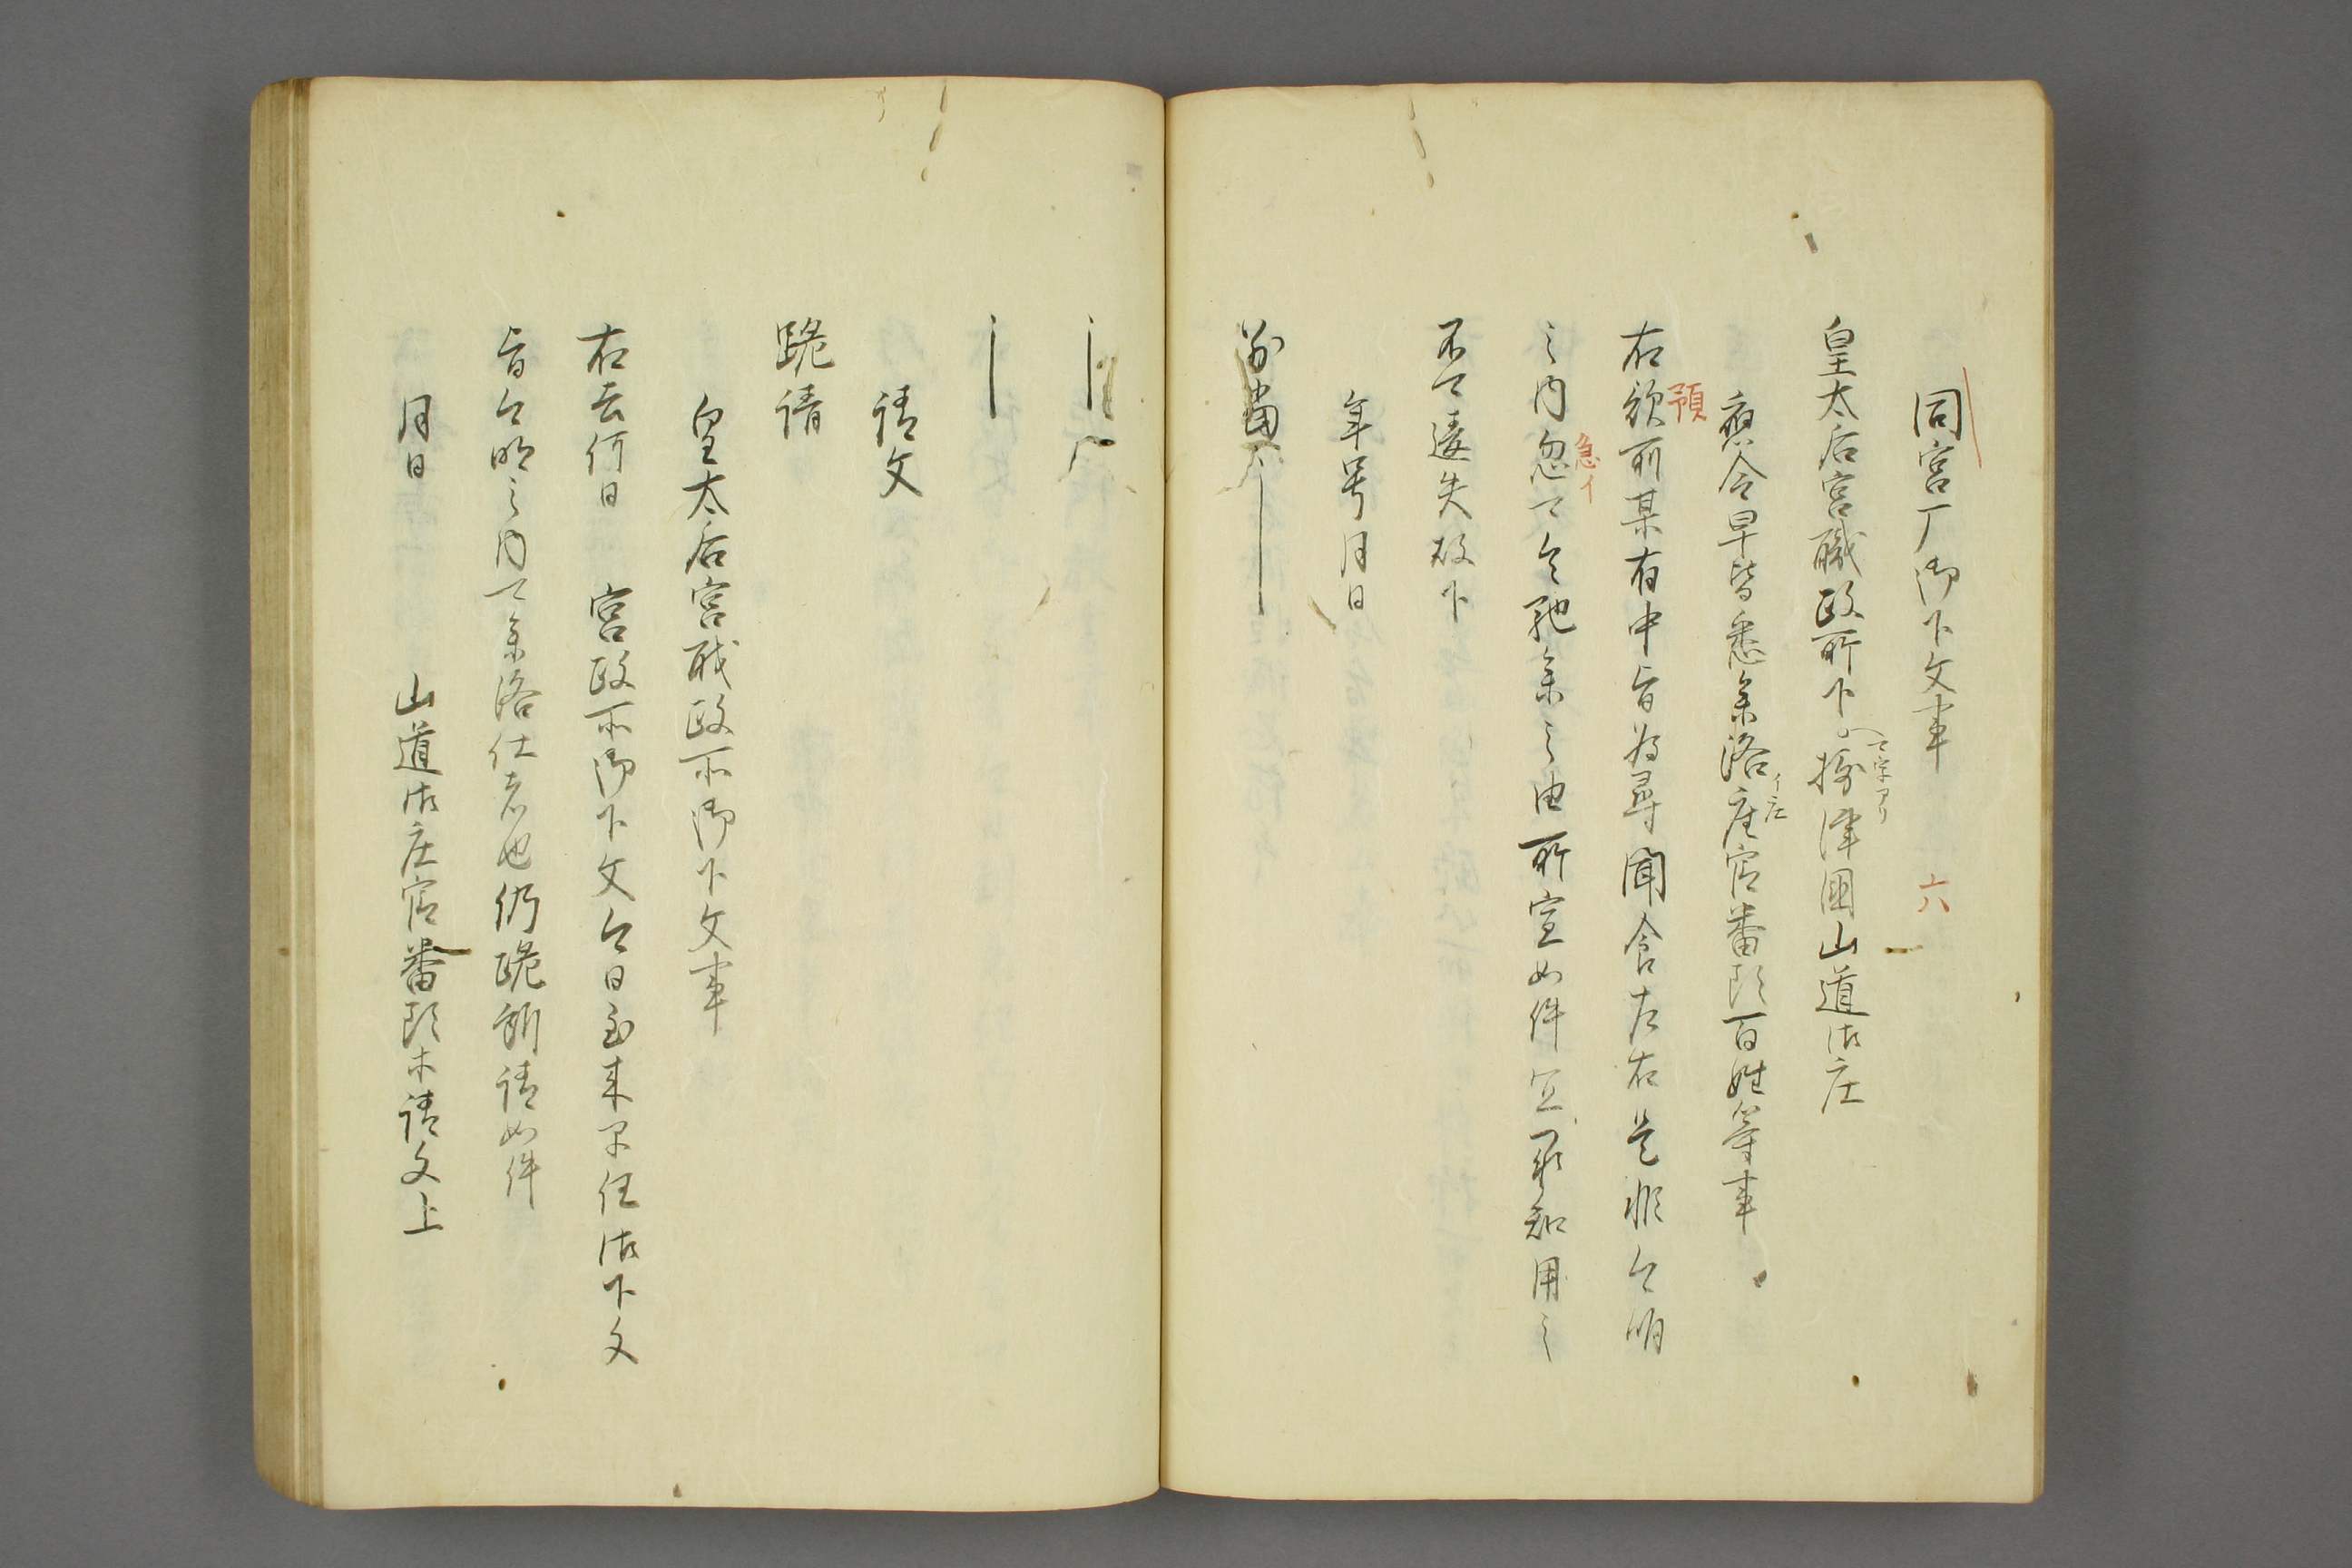 同宮厂御下文事
六
皇太后宮職政所下 摂津國山道御庄
應令早皆悉参洛庄官番頭百姓等事
イ庄
右預所某有申旨為尋聞食左右是非今明
預
之内忽可令馳参之由所宣如件宜承知用之
急イ
不可違失故下
年号月日
別當
請文
跪請
皇太后宮職政所御下文事
右去何日 宮政所御下文今日到来早任御下文
旨今明之内可参洛仕者也仍跪所請如件
月日 山道御庄官番頭木請文上